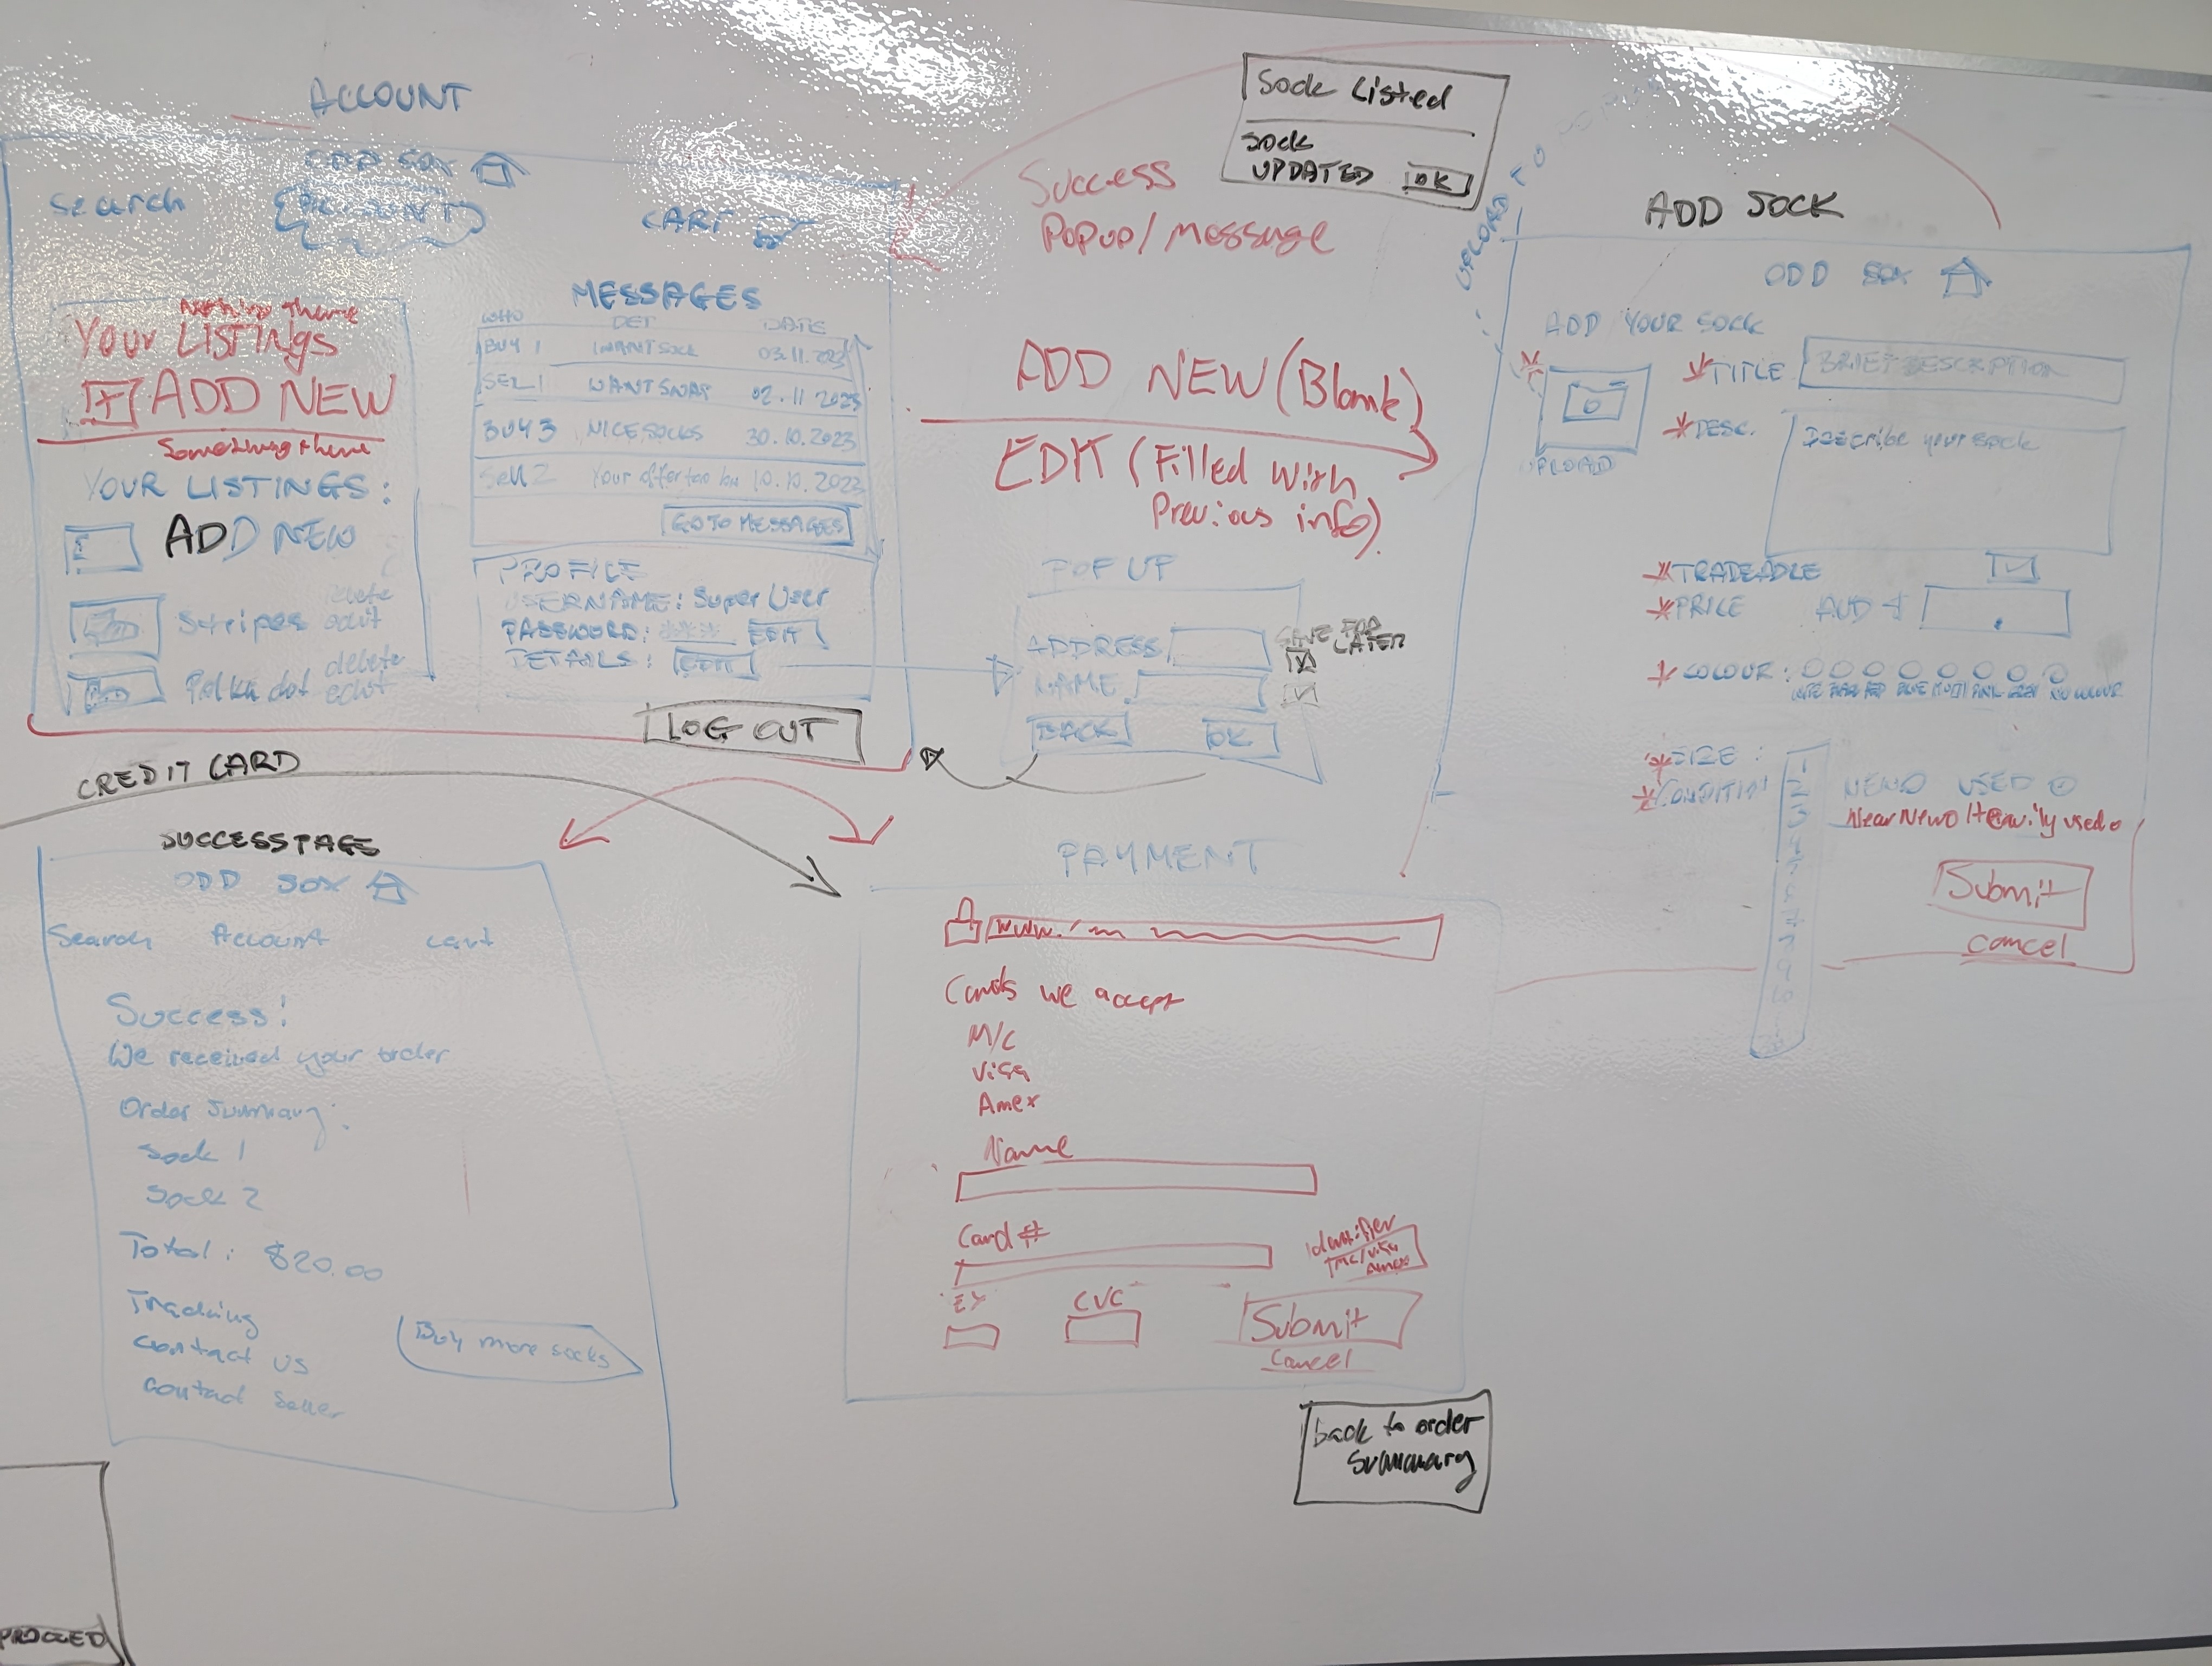 ACCOUNT
ODD SOX
Search
ACCOUNT
CART
Nothing there
Your LISTINGS
+ ADD NEW
Something there
YOUR LISTINGS:
ADD NEW
Stripes
delete
edit
Polka dot
delete
edit
MESSAGES
WHO DET DATE
BUY 1 I WANT SOCK 03.11.2023
SEL 1 WANT SWAP 02.11.2023
BUY 3 NICE SOCKS 30.10.2023
Sell 2 Your offer 10.10.2023
GO TO MESSAGES
PROFILE
USERNAME: Super User
PASSWORD: *** EDIT
DETAILS: EDIT
LOG OUT
Sock Listed
Sock
UPDATED OK
Success
Popup/message
ADD NEW (Blank)
EDIT (Filled with
Previous info)
POP UP
ADDRESS
SAVE FOR
LATER
NAME
BACK OK
UPLOAD TO
ADD SOCK
ODD SOX
ADD YOUR SOCK
UPLOAD
*TITLE BRIEF DESCRIPTION
*DESC. Describe your sock
*TRADEABLE
*PRICE AUD $
*COLOUR:
*SIZE:
*CONDITION
NEW O USED O
Near New O Heavily used o
Submit
cancel
CREDIT CARD
SUCCESS PAGE
ODD SOX
Search Account cart
Success!
We received your order
Order Summary:
Sock 1
Sock 2
Total: $20.00
Tracking
Contact us
Contact Seller
Buy more socks
PAYMENT
www.
Cards we accept
M/C
Visa
Amex
Name
Card #
Identifier
MC/Visa
Amex
EX
CVC
Submit
Cancel
back to order
Summary
PROCEED